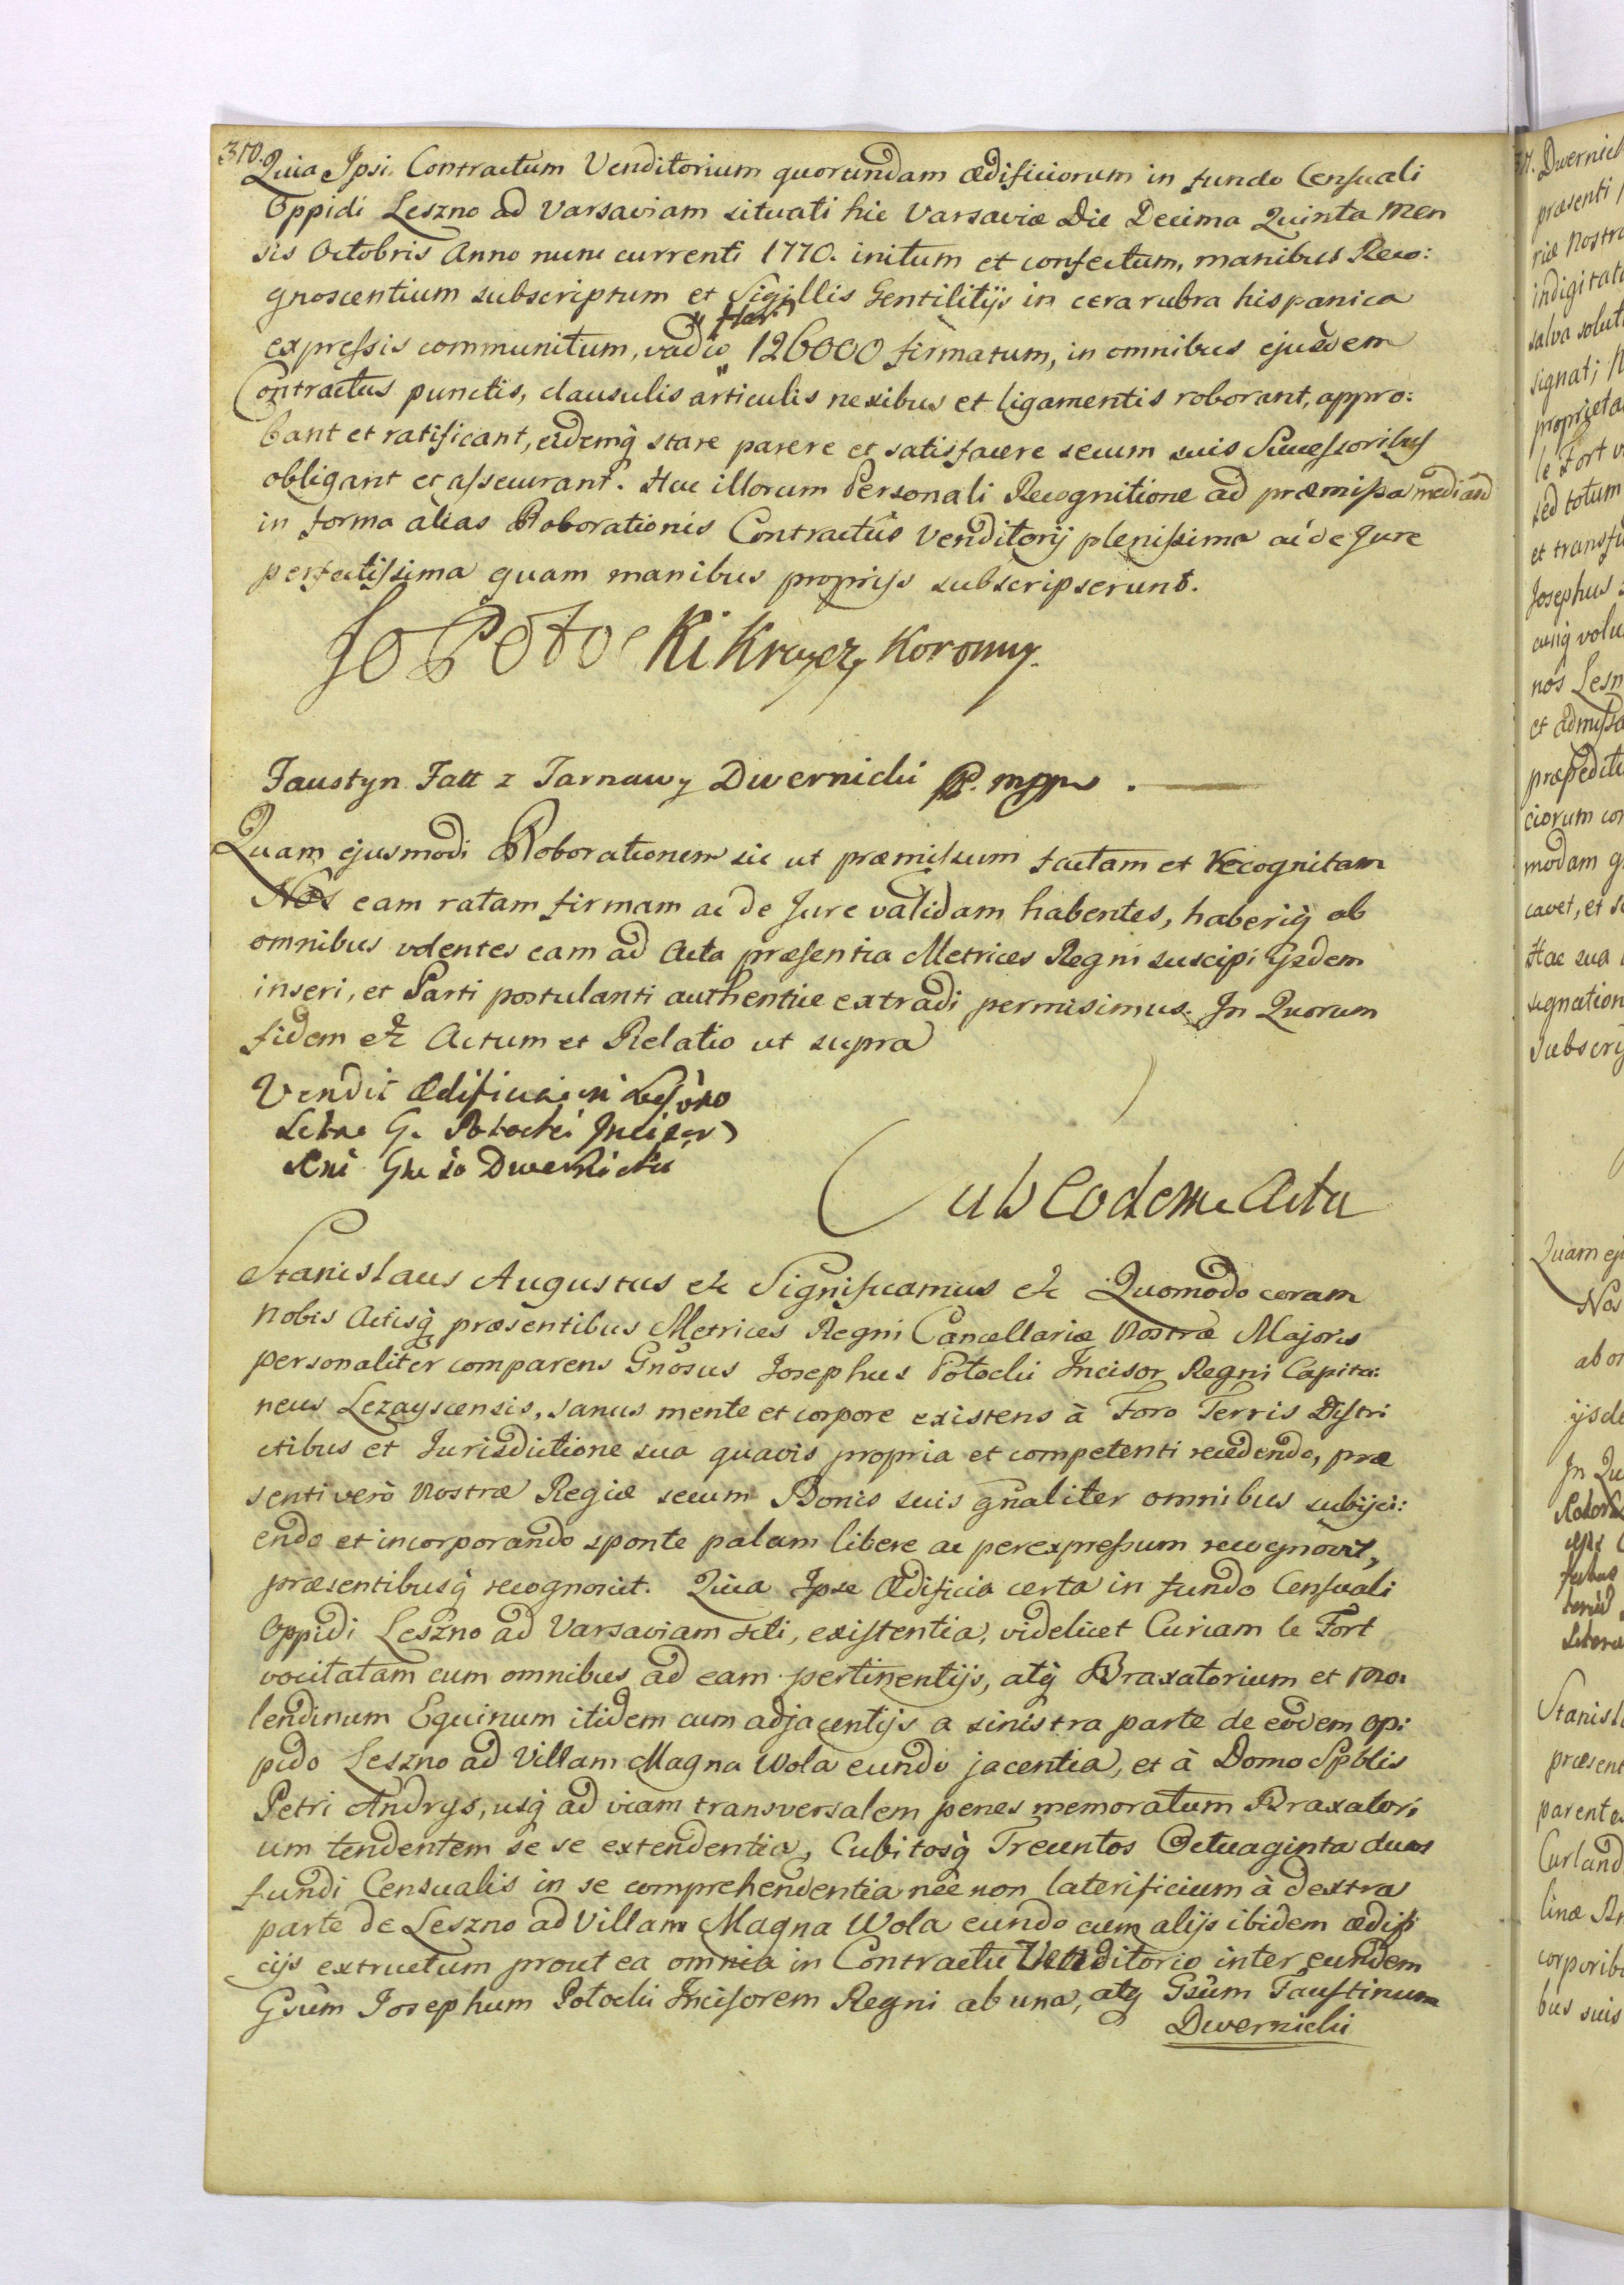 310.
Quia Ipsi Contractum Venditorium quorundam ædificiorum in fundo Censuali
Oppidi Leszno ad Varsaviam situati hic Varsaviæ Die Decima Quinta Men
sis Octobris Anno nunc currenti 1770. initum et confectum, manibus Reco:
gnoscentium subscriptum et Sigillis Gentilitijs in cera rubra hispanica
expressis communitum, vadio 126000 firmatum, in omnibus ejusdem
Contractus punctis, clausulis articulis nexibus et ligamentis roborant, appro:
bant et ratificant, eidemq̀ stare parere et satisfacere secum suis Successoribus
obligant et assecurant. Hac illorum Personali Recognitione ad præmissa mediand
in forma alias Roborationis Contractûs Venditorij plenissima ac de Jure
perfectissima quam manibus proprijs subscripserunt.
Jo Potocki Krayczy Koronny.
Faustyn Fatt z Tarnawy Dwernicki mpp
Quam ejusmodi Roborationem sic ut præmissum factam et Recognitam
Nos eam ratam firmam ac de Jure validam habentes, haberiq̀ ab
omnibus volentes eam ad Acta præsentia Metrices Regni suscipi Ijsdem
inseri, et Parti postulanti authentice extradi permisimus. In Quorum
fidem etc Actum et Relatio ut supra
Vendit Ædificia in
G. Potocki Incisor
Dwernicki
Sub Eodem Actu
Stanislaus Augustus etc Significamus etc Quomodo coram
Nobis Actisq̀ præsentibus Metrices Regni Cancellariæ Nostræ Majoris
personaliter comparens Gnosus Josephus Potocki Incisor Regni Capita:
neus Lezayscensis, sanus mente et corpore existens à Foro Terris Distri
ctibus et Jurisdictione sua quavis propria et competenti recedendo, præ
senti verò Nostræ Regiæ secum Bonis suis gnaliter omnibus subijci:
endo et incorporando sponte palam libere ac perexpressum recognovit,
præsentibusq̀ recognoscit. Quia Ipse Ædificia certa in fundo Censuali
Oppidi Leszno ad Varsaviam siti, existentia, videlicet Curiam le Fort
vocitatam cum omnibus ad eam pertinentijs, atq̀ Braxatorium et Mo:
lendinum Equinum itidem cum adjacentijs a sinistra parte de eodem Op:
pido Leszno ad Villam Magna Wola eundo jacentia, et à Domo Spblis
Petri Andrys, usq̀ ad viam transversalem penes memoratum Braxatori
um tendentem se se extendentia, Cubitosq̀ Trecentos Octuaginta duos
fundi Censualis in se comprehendentia nec non laterificium à dextra
parte de Leszno ad Villam Magna Wola eundo cum alijs ibidem ædifi
cijs extructum prout ea omnia in Contractu Venditorio inter eundem
Gsum Josephum Potocki Incisorem Regni ab una, atq̀ Gsum Faustinum
Dwernicki
Dwernick
præsenti
riæ Nostræ
indigitat
salva solut
signat;
proprieta
le Fort
sed totum
et transfu
Josephus
cuiq̀ volu
nos Lesn
et admissa
præpedit
ciorum con
modam
cavet, et
Hac sua
signation
Subscri
Quam ej
Nos
ab o
ijsde
In Qu
Stanisl
præsent
parente
Curland
linæ
corporib
bus suis